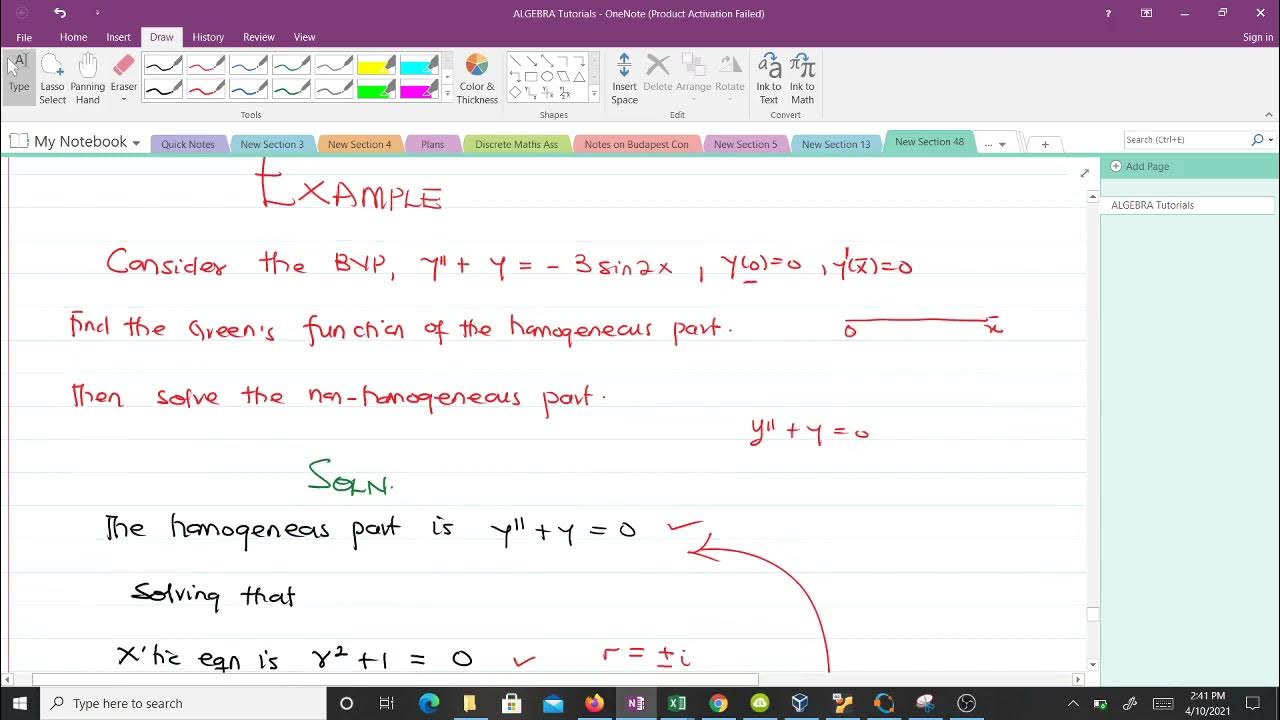 ALGEBRA Tutorials - OneNote (Product Activation Failed)
File Home Insert Draw History Review View
Sign in
Type
Lasso Select
Panning Hand
Eraser
Color & Thickness
Insert Space
Delete Arrange Rotate
Ink to Text
Ink to Math
Tools
Shapes
Edit
Convert
My Notebook
Quick Notes
New Section 3
New Section 4
Plans
Discrete Maths Ass
Notes on Budapest Con
New Section 5
New Section 13
New Section 48
...
Search (Ctrl+E)
Add Page
ALGEBRA Tutorials
EXAMPLE
Consider the BVP, y'' + y = - 3 sin 2x , y(0)=0 , y'(π)=0
Find the Green's function of the homogeneous part.
0 π
Then solve the non-homogeneous part.
y'' + y = 0
SOLN.
The homogeneous part is y'' + y = 0 ✓
Solving that
X'tic eqn is r² + 1 = 0 ✓ r = ±i
Type here to search
2:41 PM
4/10/2021